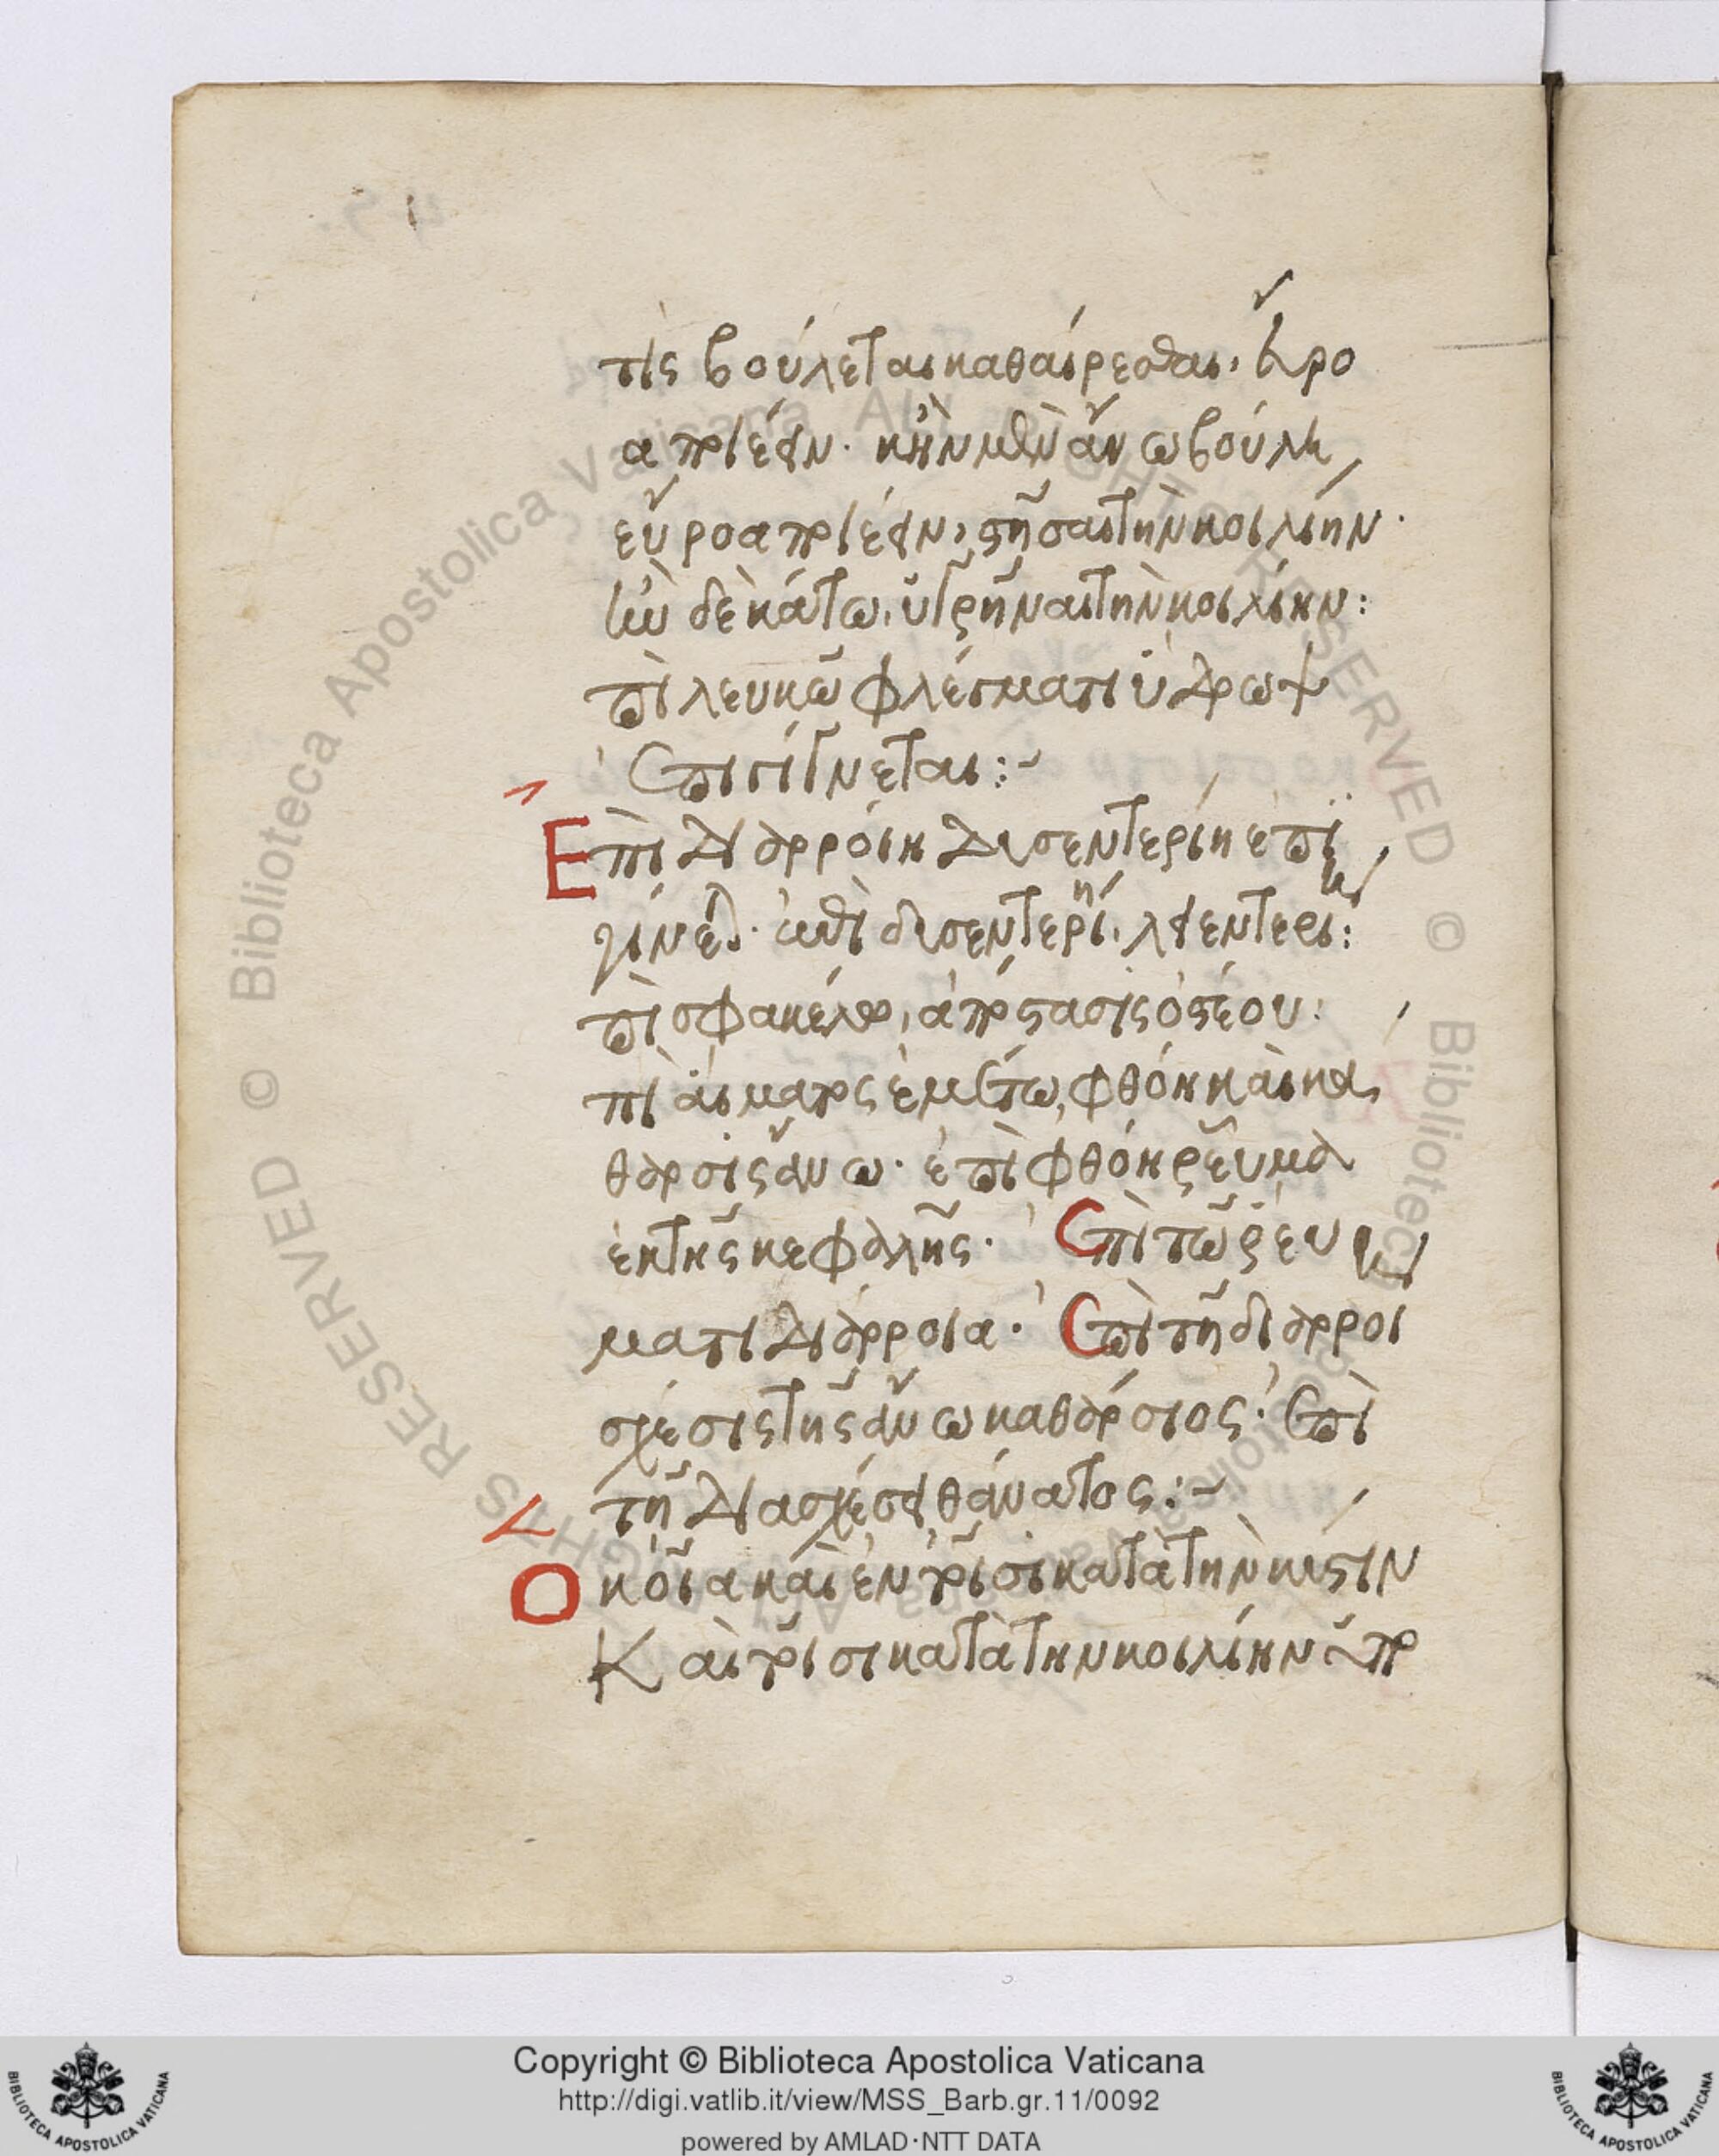 τίς βούλεται καθαίρεσθαι, εὔρο
α ποιέειν. κἢν μὲν ἄνω βούλη
εὔροα ποιέειν, στῆσαι τὴν κοιλίην.
ἢν δὲ κάτω, ὑγρῆναι τὴν κοιλίην:
πὶ λευκῶ φλέγματι ὕδρωψ
ἐπιγίγνεται:~
Ἐπὶ διαρροίη δυσεντερίη ἐπι
γίνεται. ἐπὶ δυσεντερίη, λειεντερι:
πὶ σφακέλω, ἀπόστασις ὀστέου:
πὶ αἵματος ἐμέτω, φθόη καὶ κα
θαρσις ἄνω. ἐπὶ φθόη ῥεῦμα
ἐκ τῆς κεφαλῆς. ἐπὶ τῶ ῥευ
ματι διάρροια. ἐπὶ τῆ διαρροι
σχέσις τῆς ἄνω καθάρσιος. ἐπὶ
τῆ διασχέσει θάνατος:~
Οκοῖα καὶ ἐν τοῖσι κατὰ τὴν κύστιν
Καὶ τοῖσι κατὰ την κοιλίην ὑπο
Copyright © Biblioteca Apostolica Vaticana
http://digi.vatlib.it/view/MSS_Barb.gr.11/0092
powered by AMLAD·NTT DATA
BIBLIOTECA APOSTOLICA VATICANA
BIBLIOTECA APOSTOLICA VATICANA